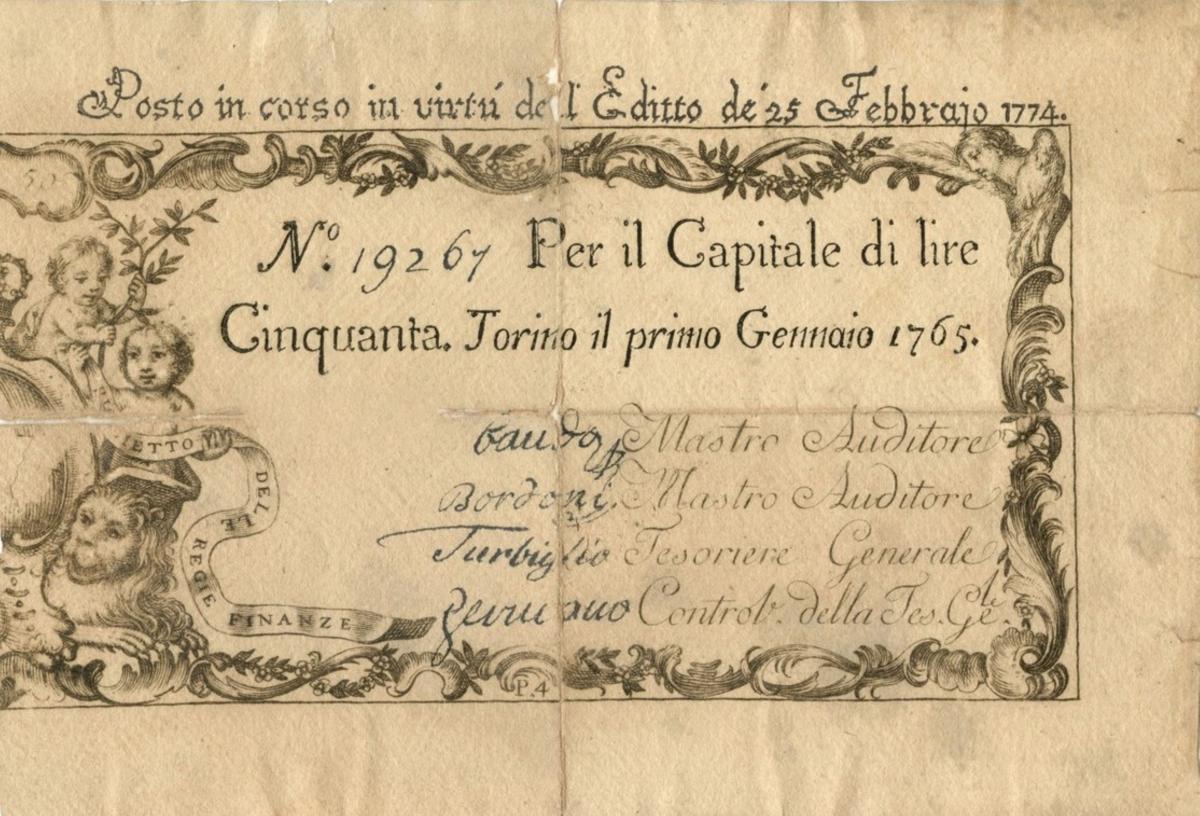 Posto in corso in virtú dell'Editto de' 25 Febbrajo 1774.
50
N.º 19267 Per il Capitale di lire
Cinquanta. Torino il primo Gennaio 1765.
Mastro Auditore
Bordoni Mastro Auditore
Turbiglio Tesoriere Generale
Germano Controlr. della Tes. Gle.
ETTO VIVO
DELLE
REGIE
FINANZE
P.4